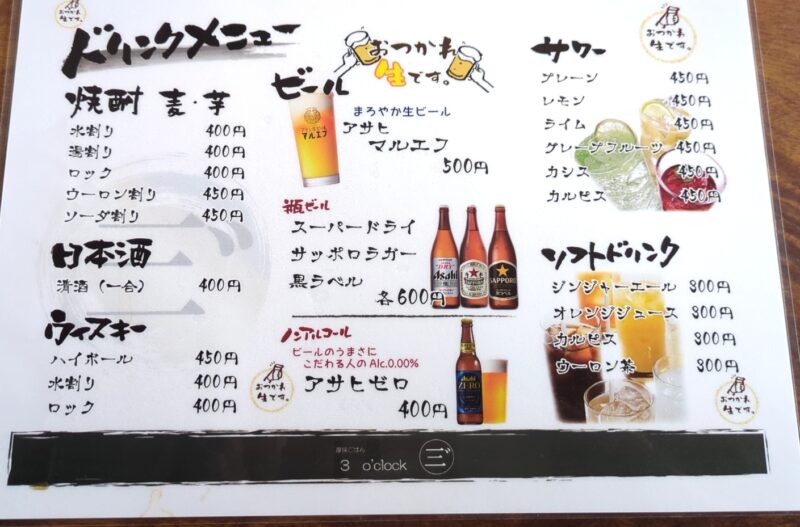 おつかれ
生です。
ドリンクメニュー
焼酎 麦・芋
水割り 400円
湯割り 400円
ロック 400円
ウーロン割り 450円
ソーダ割り 450円
日本酒
清酒(一合) 400円
ウィスキー
ハイボール 450円
水割り 400円
ロック 400円
おつかれ
生です。
おつかれ
生です。
ビール
マルエフ
まろやか生ビール
アサヒ
マルエフ
500円
瓶ビール
スーパードライ
サッポロラガー
黒ラベル
各600円
Asahi
SAPPORO
ノンアルコール
ビールのうまさに
こだわる人のAlc.0.00%
アサヒゼロ
400円
Asahi
ZERO
おつかれ
生です。
サワー
プレーン 450円
レモン 450円
ライム 450円
グレープフルーツ 450円
カシス 450円
カルピス 450円
ソフトドリンク
ジンジャーエール 300円
オレンジジュース 300円
カルピス 300円
ウーロン茶 300円
おつかれ
生です。
3 o'clock